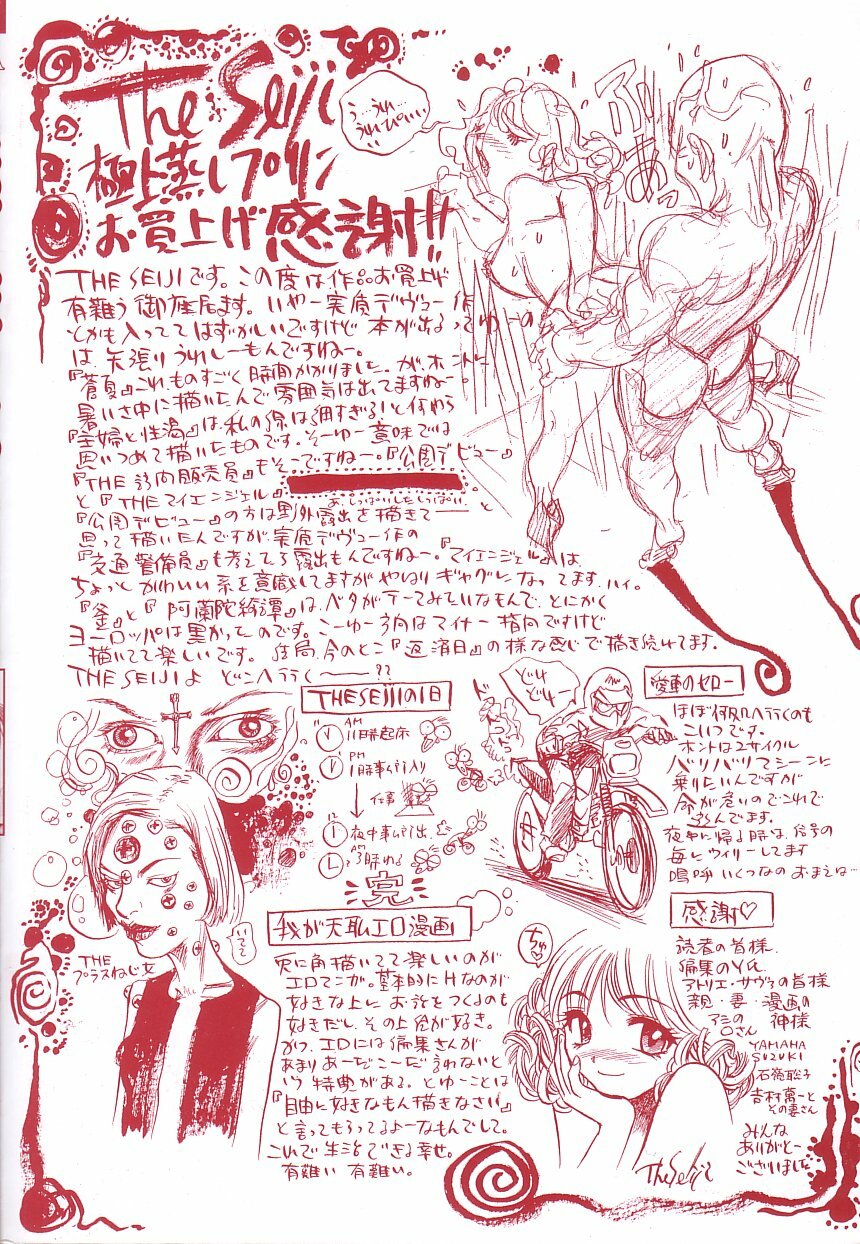 The Seiji
極上蒸しプリン
お買上げ感謝!!
う…うれ…
うれぴい…
THE SEIJIです。この度は作品お買上げ
有難う御座居ます。いやー実底デヴュー作
とかも入っててはずかしいですけど本が出るってゆーの
は矢張りうれしーもんですねー。
『蒼夏』これものすごく時間かかりました。が、ホントに
暑いさ中に描いたんで雰囲気は出てますねー。
『主婦と性渇』は、私の線は細すぎる!と
思いつめて描いたものです。そーゆー意味では
『THE 訪問販売員』もそこですねー。『公園デビュー』
と『THEマイエンジェル』
あ、しっぱいしたしっぱい
『公園デビュー』の方は野外露出を描きてーーと
思って描いたんですが、実底デヴュー作の
『交通警備員』も考えてろ露出もんですねー。『マイエンジェル』は、
ちょっとかわいい系を意識してますがやはりギャグになってます、ハイ。
『釜』と『阿蘭陀絵譚』は、ベタがテーマみたいなもんで、とにかく
ヨーロッパは黒かったのです。こーゆー方向はマイナー指向ですけど
描いてて楽しいです。結局、今のとこ『返済日』の様な感じで描き続けてます。
THE SEIJIよ どこへ行くーー??
THE SEIJIの1日
AM
11時起床
PM
1時事ム所入り
仕事
夜中事ム所出
AM
3時ねる
完
どけ
どけー
愛車のゼロー
ほぼ何処へ行くのも
こいつです。
ホントは2サイクル
バリバリマシーンに
乗りたいんですが
命が危いのでこれで
遊んでます。
夜中に帰る時は、信号の
毎にウィリーしてます
嗚呼いくつなのおまえは…
THE
プラスねじ女
いてて
我が天職エロ漫画
兎に角描いてて楽しいのが
エロマンガ。基本的にHなのが
好きな上に、お話をつくるのも
好きだし、その上絵が好き。
かつ、エロには編集さんが
あまりあーだこーだ言わないと
いう特典がある。とゆーことは
『自由に好きなもん描きなさい』
と言ってもらってるよーなもんでして。
これで生活できる幸せ。
有難い 有難い。
ちゅ♡
感謝♡
読者の皆様
編集のY氏
アトリエ・サヴァの皆様
親・妻・漫画の神様
アシの口さん
YAMAHA
SUZUKI
石嶺聡子
吉村萬一と
その妻さん
みんな
ありがとー
ございました
The Seiji